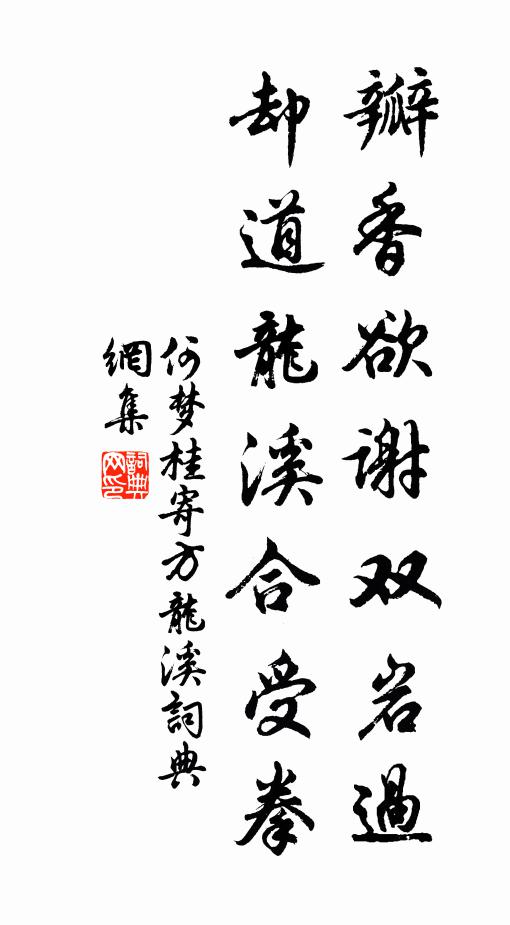 瓣香欲谢双岩過
却道龍溪合受拳
何梦桂寄方龍溪詞典
網集
詞典網印